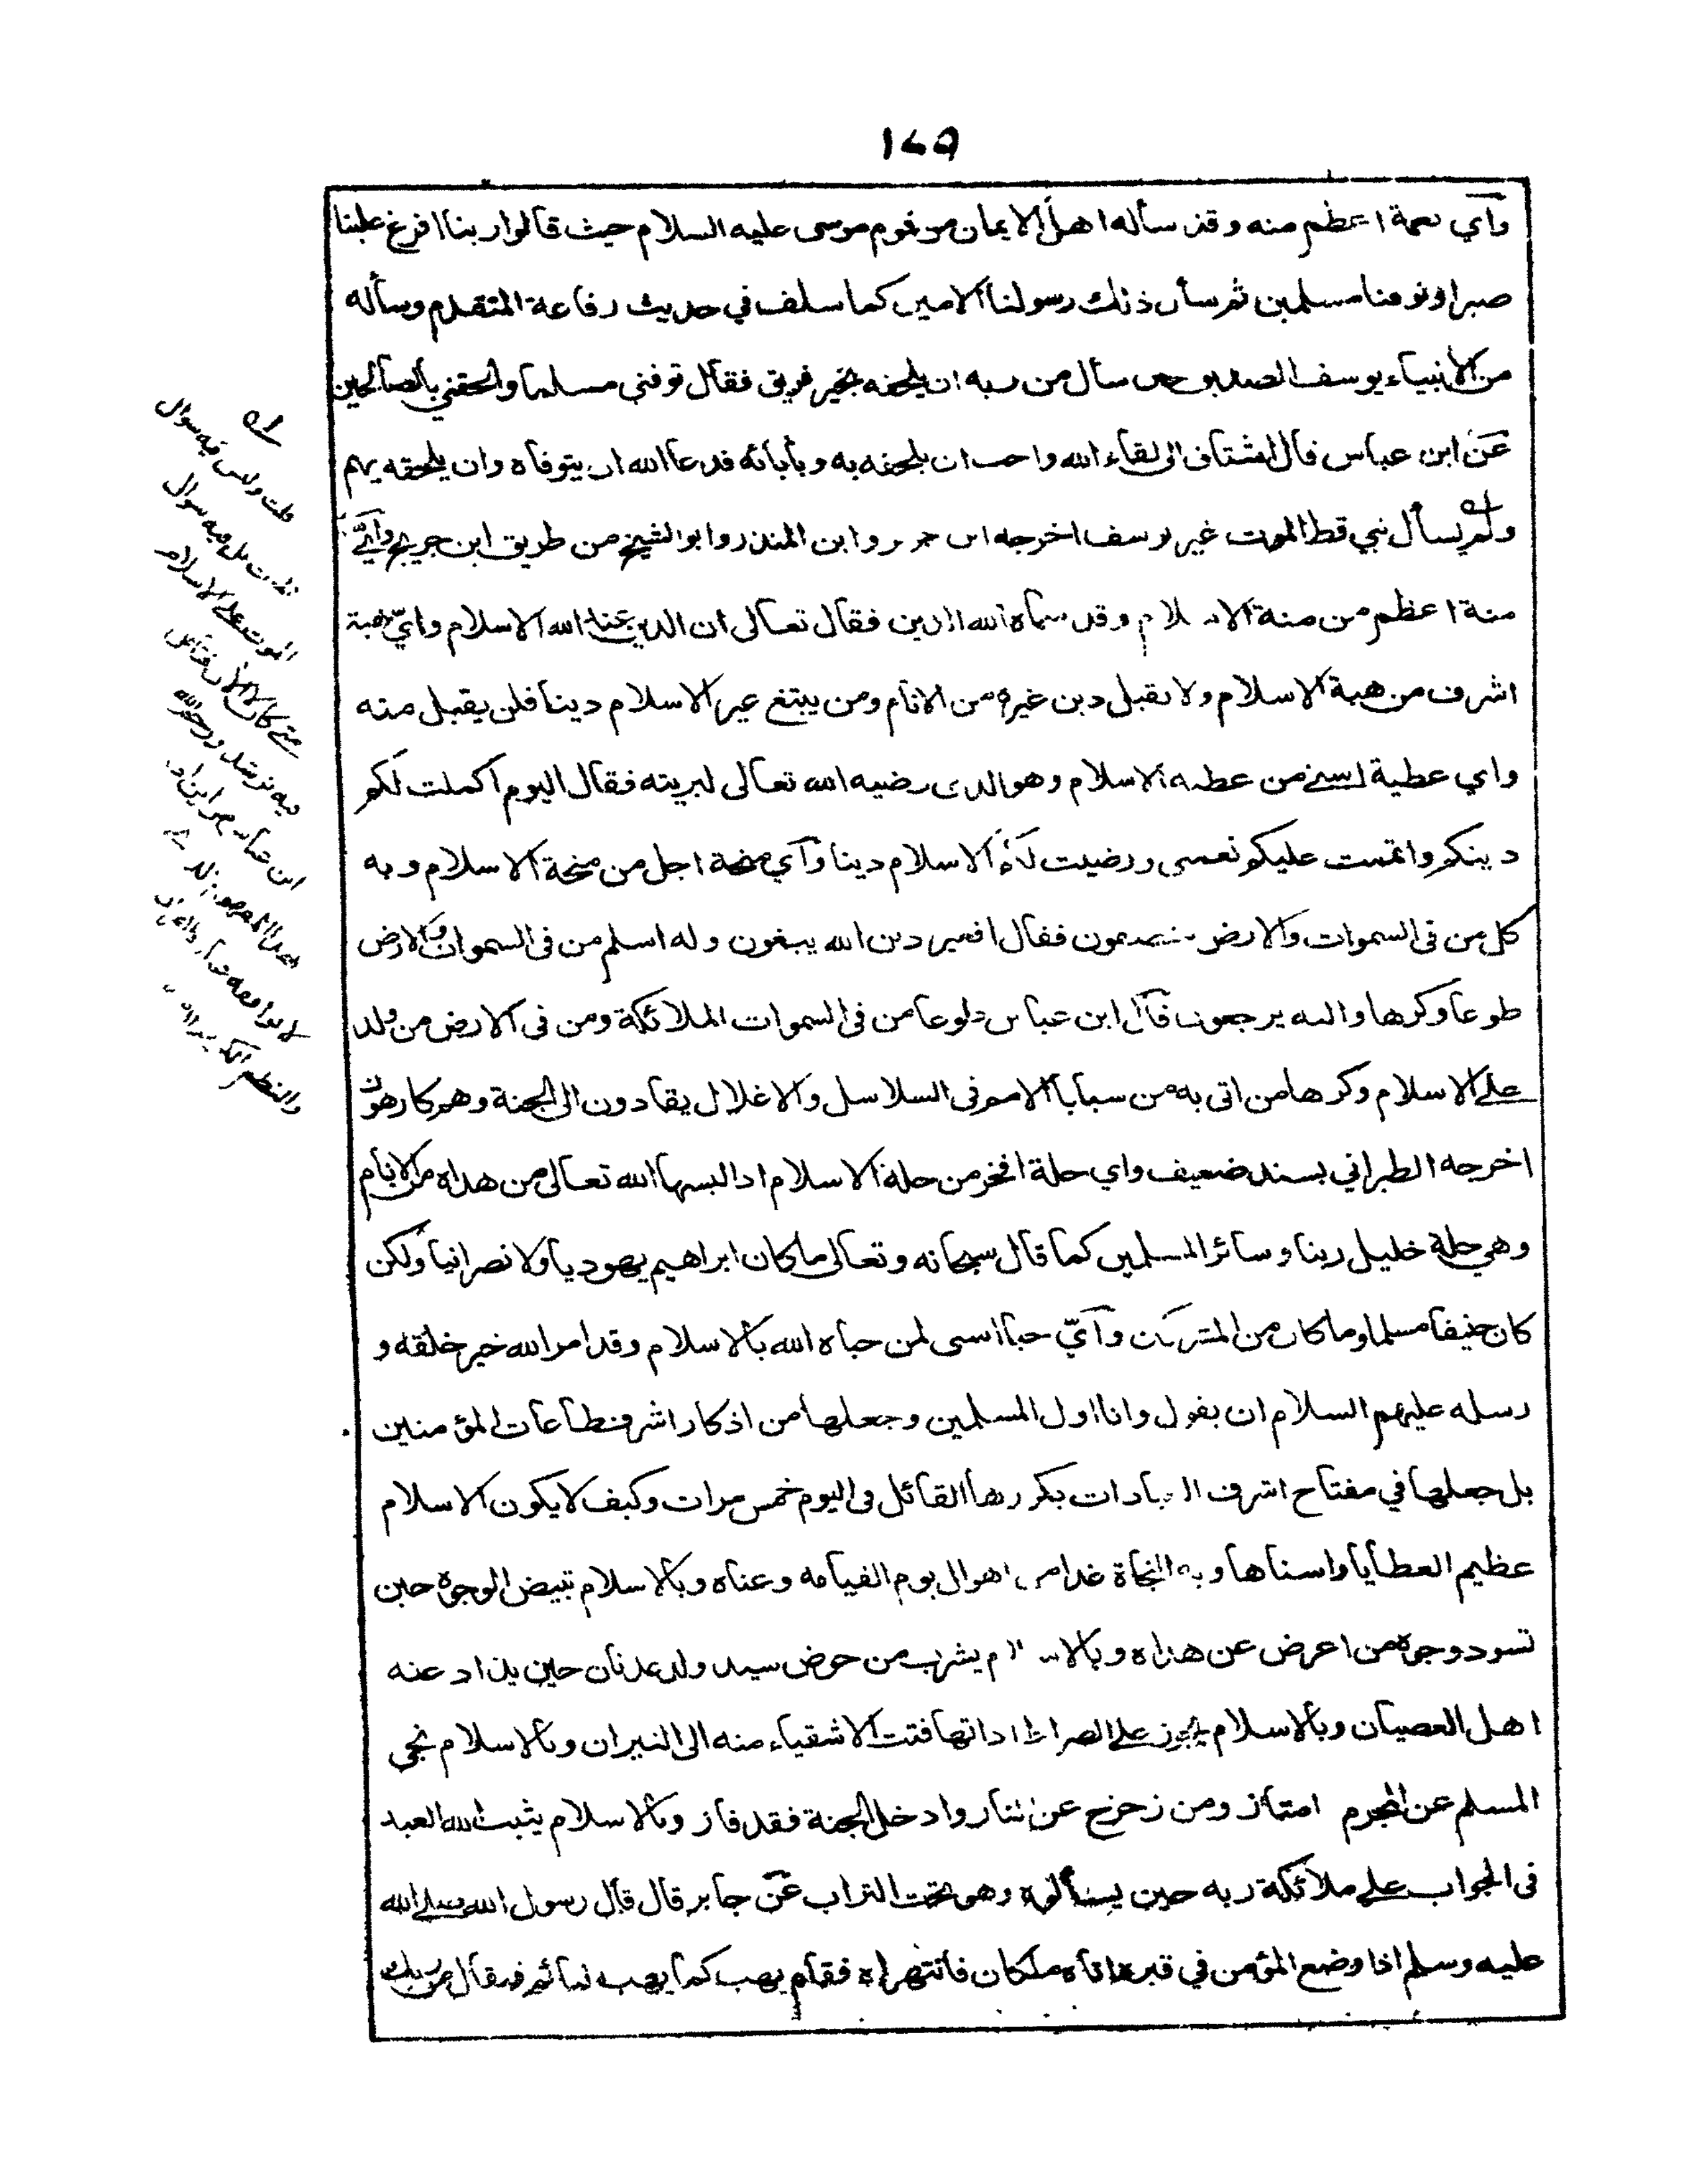 ١٤٥
وأي نعمة اعظم منه وقد سأله اهل الايمان من قوم موسى عليه السلام حيث قالوا ربنا افرغ علينا
صبرا وتوفنا مسلمين ثم سأل ذلك رسولنا الامين كما سلف في حديث رفاعة المتقدم وسأله
من الانبياء يوسف الصديق حين سأل من ربه ان يلحقه بخير فريق فقال توفني مسلما والحقني بالصالحين
عن ابن عباس قال اشتاق الى لقاء الله واحب ان يلحقه به وبآبائه فدعا الله ان يتوفاه وان يلحقه بهم
ولم يسأل نبي قط الموت غير يوسف اخرجه ابن جرير وابن المنذر وابو الشيخ من طريق ابن جريج وأي
منة اعظم من منة الاسلام وقد سماه الله الدين فقال تعالى ان الدين عند الله الاسلام واي هبة
اشرف من هبة الاسلام ولا يقبل دين غيره من الانام ومن يبتغ غير الاسلام دينا فلن يقبل منه
واي عطية اسنى من عطية الاسلام وهو الذي رضيه الله تعالى لبريته فقال اليوم اكملت لكم
دينكم واتممت عليكم نعمتي ورضيت لكم الاسلام دينا وأي منحة اجل من منحة الاسلام وبه
كل من في السموات والارض فقال افغير دين الله يبغون وله اسلم من في السموات والارض
طوعا وكرها واليه يرجعون قال ابن عباس طوعا من في السموات الملائكة ومن في الارض من ولد
على الاسلام وكرها من اتى به من سبايا الامم في السلاسل والاغلال يقادون الى الجنة وهم كارهون
اخرجه الطبراني بسند ضعيف واي حلة افخر من حلة الاسلام اذ البسها الله تعالى من هداه من الانام
وهي حلة خليل ربنا وسائر المسلمين كما قال سبحانه وتعالى ما كان ابراهيم يهوديا ولا نصرانيا ولكن
كان حنيفا مسلما وما كان من المشركين وأي حبا اسنى لمن حباه الله بالاسلام وقد امر الله خير خلقه و
رسله عليهم السلام ان يقول وانا اول المسلمين وجعلها من اذكار اشرف طاعات المؤمنين
بل جعلها في مفتاح اشرف العبادات يكررها القائل في اليوم خمس مرات وكيف لا يكون الاسلام
عظيم العطايا واسناها وبه النجاة غدا من اهوال يوم القيامه وعناه وبالاسلام تبيض الوجوه حين
تسود وجوه من اعرض عن هداه وبالاسلام يشرب من حوض سيد ولد عدنان حين يذاد عنه
اهل العصيان وبالاسلام يجوز على الصراط اذا تهافتت الاشقياء منه الى النيران وبالاسلام نجى
المسلم عن المجرم امتاز ومن زحزح عن النار وادخل الجنة فقد فاز وبالاسلام يثبت الله العبد
في الجواب على ملائكة ربه حين يسألوه وهو تحت التراب عن جابر قال قال رسول الله صلى الله
عليه وسلم اذا وضع المؤمن في قبره اتاه ملكان فانتهراه فقام يهب كما يهب النائم فيقال من ربك
قلت وليس فيه سوال
الموت بل فيه سوال
الموت على الاسلام
متى كان